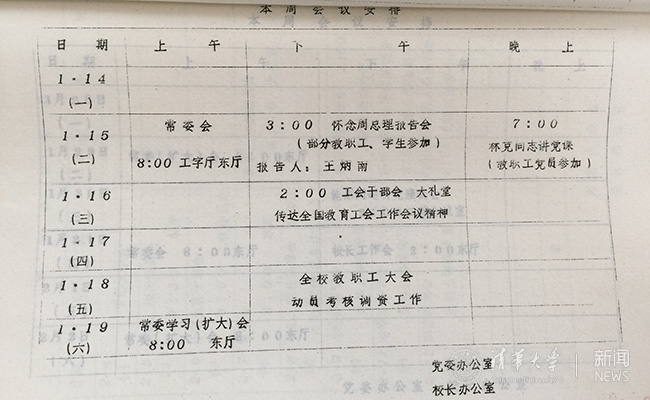 本周会议安排
日 期 上 午 下 午 晚 上
1·14
(一)
1·15
(二)
常委会
8:00 工字厅东厅
3:00 怀念周总理报告会
(部分教职工、学生参加)
报告人: 王炳南
7:00
林克同志讲党课
(教职工党员参加)
1·16
(三)
2:00 工会干部会 大礼堂
传达全国教育工会工作会议精神
1·17
(四)
1·18
(五)
全校教职工大会
动员考核调资工作
1·19
(六)
常委学习(扩大)会
8:00 东厅
党委办公室
校长办公室
清华大学 新闻
NEWS